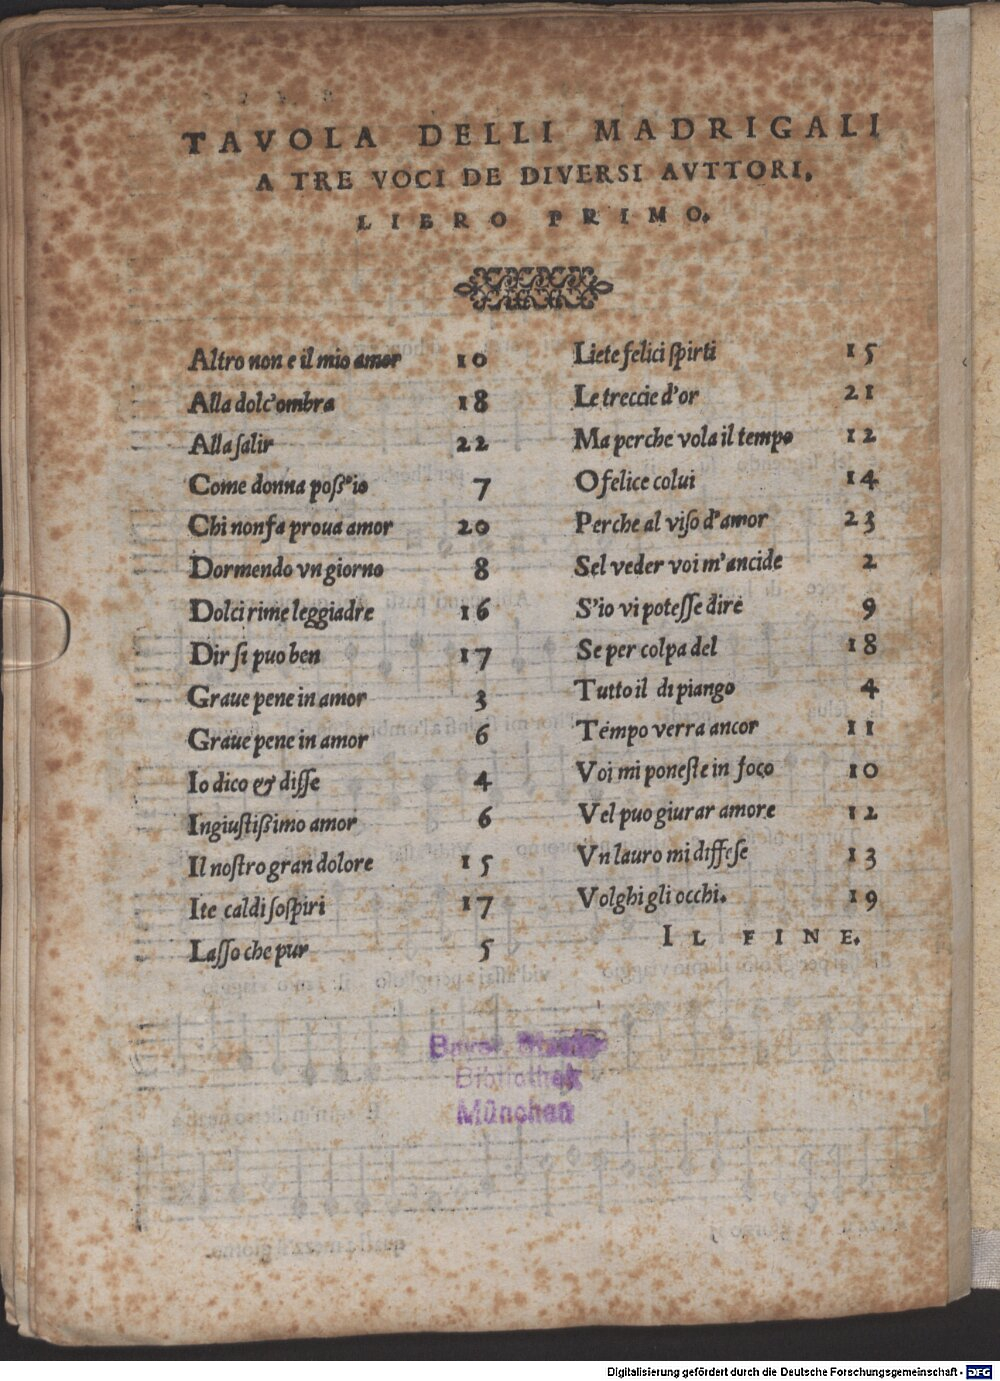 TAVOLA DELLI MADRIGALI
A TRE VOCI DE DIVERSI AVTTORI.
LIBRO PRIMO.
Altro non e il mio amor 10
Alla dolc'ombra 18
Alla salir 22
Come donna poss'io 7
Chi non fa proua amor 20
Dormendo vn giorno 8
Dolci rime leggiadre 16
Dir si puo ben 17
Graue pene in amor 3
Graue pene in amor 6
Io dico & disse 4
Ingiustißimo amor 6
Il nostro gran dolore 15
Ite caldi sospiri 17
Lasso che pur 5
Liete felici spirti 15
Le treccie d'or 21
Ma perche vola il tempo 12
O felice colui 14
Perche al viso d'amor 23
Sel veder voi m'ancide 2
S'io vi potesse dire 9
Se per colpa del 18
Tutto il di piango 4
Tempo verra ancor 11
Voi mi poneste in foco 10
Vel puo giurar amore 12
Vn lauro mi diffese 13
Volghi gli occhi. 19
IL FINE.
Bibliothek
München
Digitalisierung gefördert durch die Deutsche Forschungsgemeinschaft - DFG